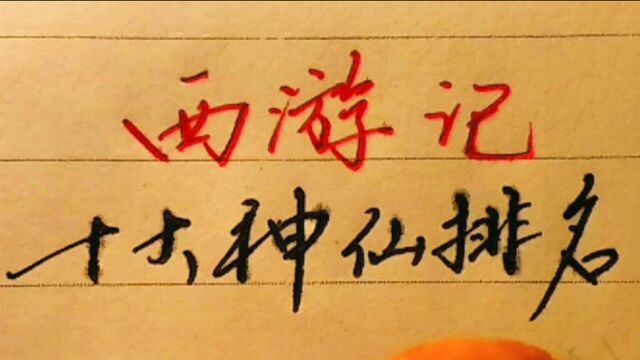 西游记
十大神仙排名